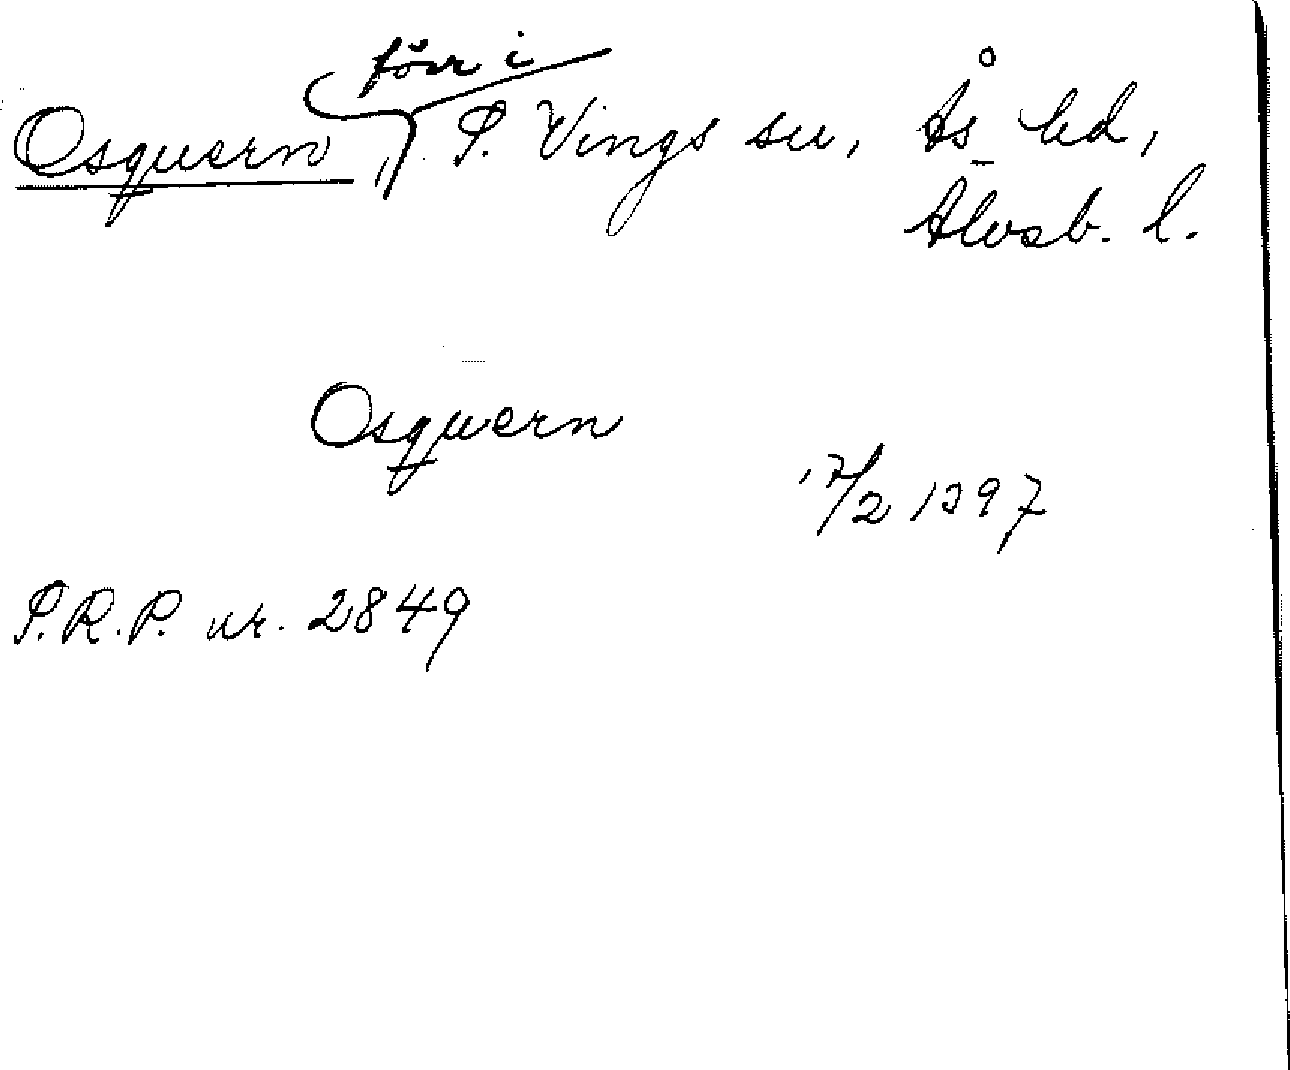 förr i
Osquern, S. Vings sn, Ås hd,
Älvsb. l.
Osqwern
17/2 1397
S.R.P. nr. 2849